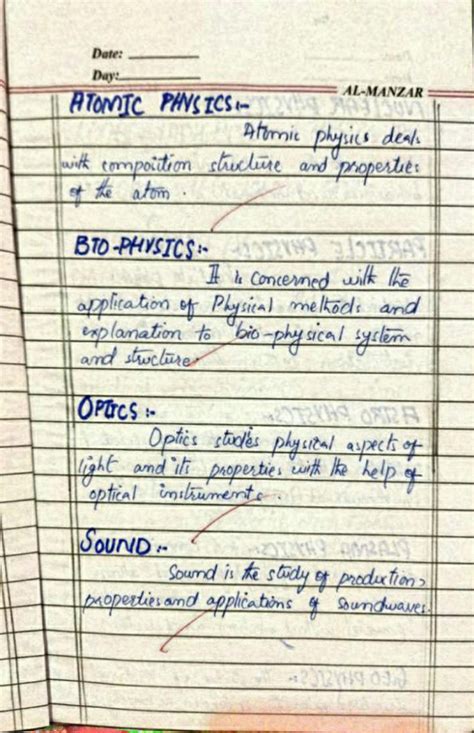 Date:
Day:
AL-MANZAR
ATOMIC PHYSICS:-
Atomic physics deals
with composition structure and properties
of the atom.
BIO-PHYSICS:-
It is concerned with the
application of Physical methods and
explanation to bio-physical system
and structure
OPTICS :-
Optics studies physical aspects of
light and its properties with the help of
optical instruments
SOUND:-
Sound is the study of production,
properties and applications of soundwaves.